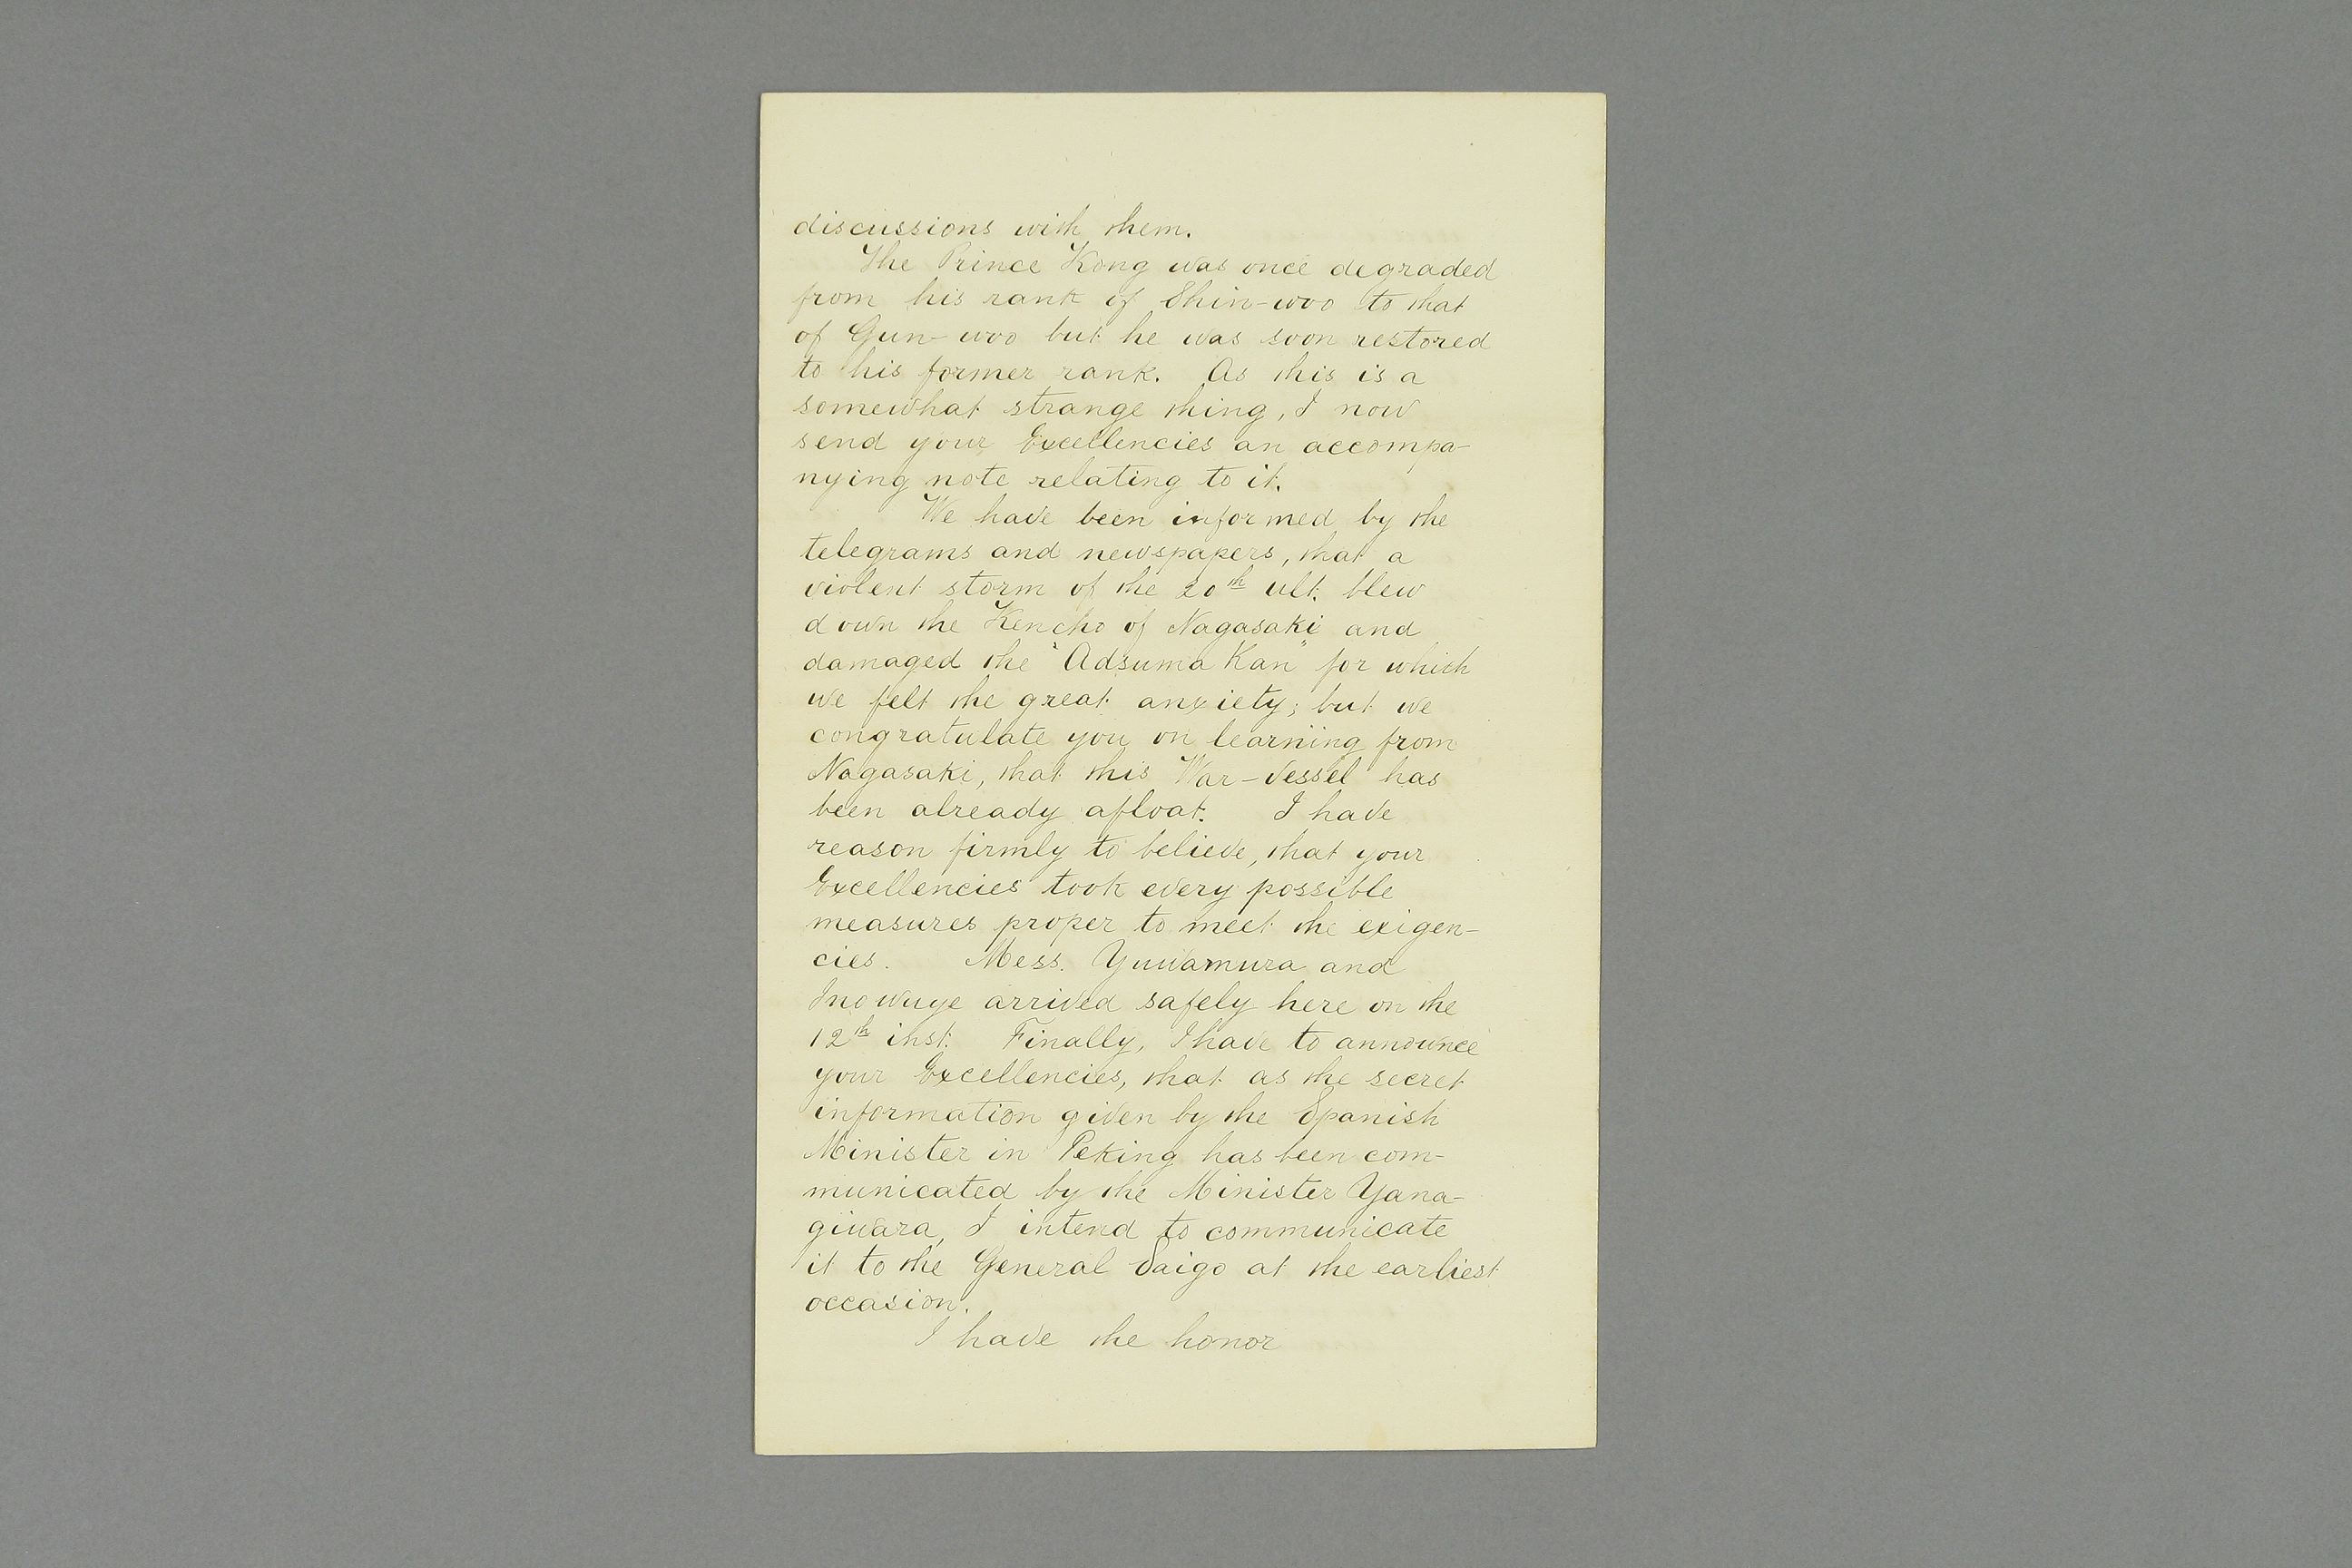 discussions with them.
The Prince Kong was once degraded
from his rank of Shin-woo to that
of Gun-woo but he was soon restored
to his former rank. As this is a
somewhat strange thing, I now
send your Excellencies an accompa-
nying note relating to it.
We have been informed by the
telegrams and newspapers, that a
violent storm of the 20th ult. blew
down the Kencho of Nagasaki and
damaged the "Adsuma Kan" for which
we felt the great anxiety; but we
congratulate you on learning from
Nagasaki, that this War-Vessel has
been already afloat. I have
reason firmly to believe, that your
Excellencies took every possible
measures proper to meet the exigen-
cies. Mess. Yuwamura and
Inowuye arrived safely here on the
12th inst. Finally, I have to announce
your Excellencies, that as the secret
information given by the Spanish
Minister in Peking has been com-
municated by the Minister Yana-
giwara, I intend to communicate
it to the General Saigo at the earliest
occasion.
I have the honor